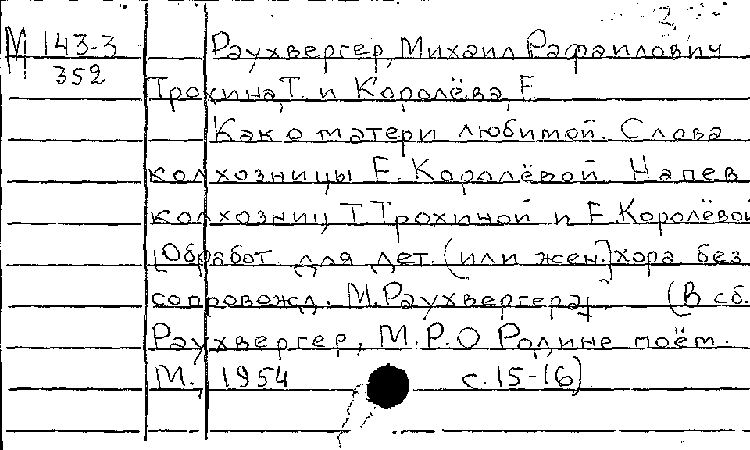 М 143-3 Раухвергер, Михаил Рафаилович
352
Трохина, Т. и Королёва, Е.
Как о матери любимой. Слова
колхозницы Е. Королёвой. Напев
колхозниц Т. Трохиной и Е. Королёвой
[Обработ. для дет. (или жен.] хора без
сопровожд. М. Раухвергера] (В сб.
Раухвергер, М.Р. О Родине поём.
М., 1954 с. 15-16)